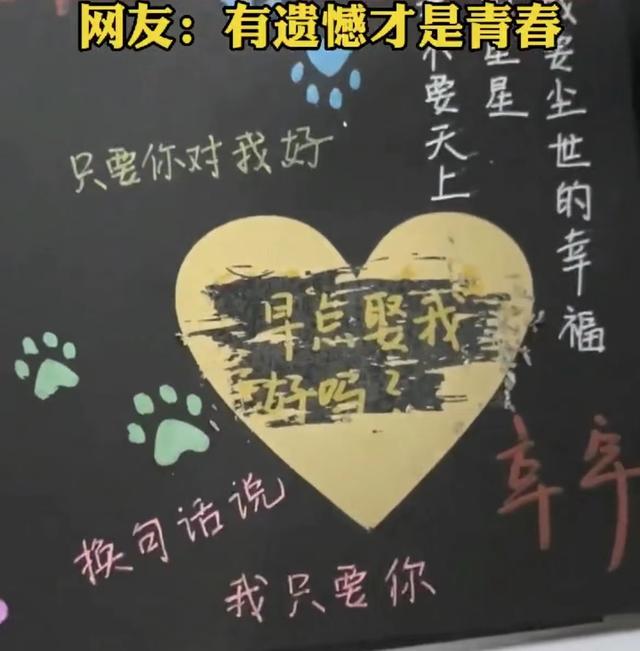 网友：有遗憾才是青春
我要尘世的幸福
星星
不要天上
只要你对我好
早点娶我
好吗？
换句话说
我只要你